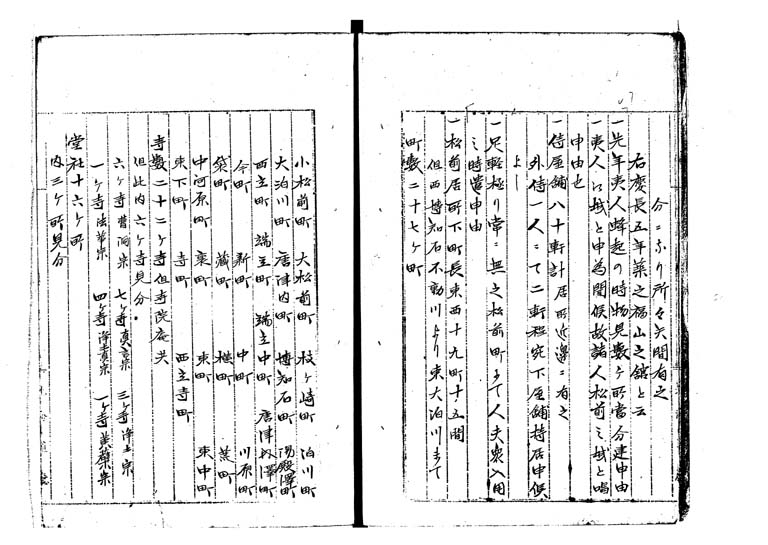 分ニ而所々矢間有之
右慶長五年築之福山之舘と云
一先年夷人蜂起の時物見数ヶ所當分建申由
一夷人ニハ城と申為聞候故諸人松前之城と唱
申由也
一侍屋舗八十軒計居所近邊ニ有之
外侍一人ニて二軒程宛下屋舗持居申候
よし
一足軽極り常ニ無之松前町にて人夫衆入用
之時遣申由
一松前居所下町長東西十九町十五間
但西博知石不動川より東大泊川まて
町数二十七ヶ町
小松前町 大松前町 枝ヶ崎町 泊川町
大泊川町 唐津内町 博知石町 湯殿澤町
西立町 端立町 端立中町 唐津内澤町
今町 新町 中町 川原町
築町 蔵町 横町 蒸町
中河原町 裏町 東町 東中町
東下町 寺町 西立寺町
寺数二十二ヶ寺但寺院庵共
但此内六ヶ寺見分。
六ヶ寺曹洞宗 七ヶ寺真言宗 三ヶ寺浄土宗
一ヶ寺法華宗 四ヶ寺浄真宗 一ヶ寺黄蘗宗
堂社十六ヶ所
内三ヶ所見分